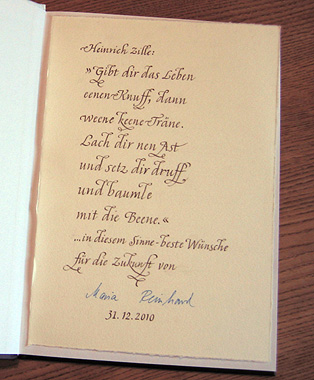 Heinrich Zille:
»Gibt dir das Leben
eenen Knuff, dann
weene keene Träne.
Lach dir nen Ast
und setz dir druff
und baumle
mit die Beene.«
...in diesem Sinne - beste Wünsche
für die Zukunft von
Maria Reinhard
31. 12. 2010